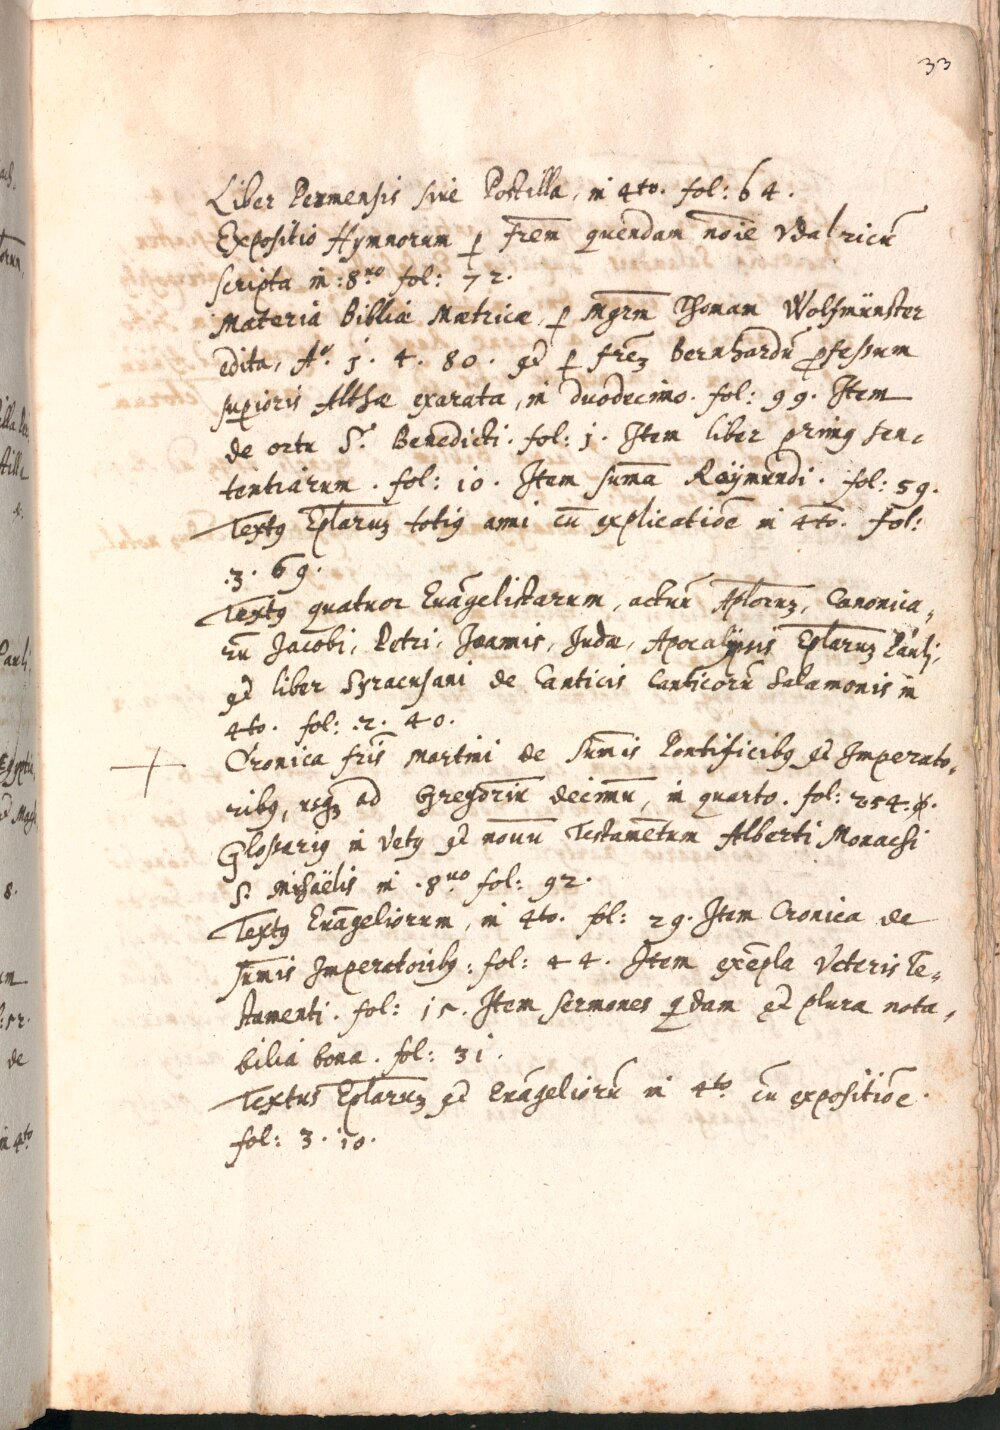 33
Liber Permensis sive Postilla, in 4to. fol: 64.
Expositio Hymnorum ꝑ frem̄ quendam noīe Vdalricū
scripta in :8.uo fol: 72.
Materia Bibliæ Metricæ, ꝑ Mgrm̄ Thomam Wolfmünster
edita, Ao. 1. 4. 80. et ꝑ frēz Bernhardū ꝓfessum
suꝑioris Althæ exarata, in duodecimo. fol: 99. Item
de ortu S. Benedicti. fol: 1. Item liber primꝰ sen,
tentiarum. fol: 10. Item sum̄a Raÿmundi. fol: 59.
Textꝰ Epl̄aruz totiꝰ anni cū explicatioē in 4to. fol:
.3. 69.
Textꝰ quatuor Euāgelistarum, actuū Apl̄oruz, Canonica,
rū Jacobi, Petri, Joannis, Judæ, Apocalÿpsis Epl̄aruz Pauli,
et liber Syracusani de Canticis Canticorū Salamonis in
4to. fol: .2. 40.
Cronica fris̄ Martini de Sum̄is Pontificibꝰ et Imperato,
ribꝰ, usqz ad Gregoriū decimū, in quarto. fol: 254.
Glossariꝰ in Vetꝰ et nouū Testamētum Alberti Monachi
S. Michaëlis in .8.uo fol: 92.
Textꝰ Euāgeliorum, in 4to. fol: 29. Item Cronica de
sum̄is Imperatoribꝰ: fol: 44. Item exēpla Veteris Te,
stamenti. fol: 15. Item sermones q̄dam et plura nota,
bilia bona. fol: 31.
Textus Epl̄aruz et Euāgeliorū in 4to. cū expositioē.
fol: 3. 10.